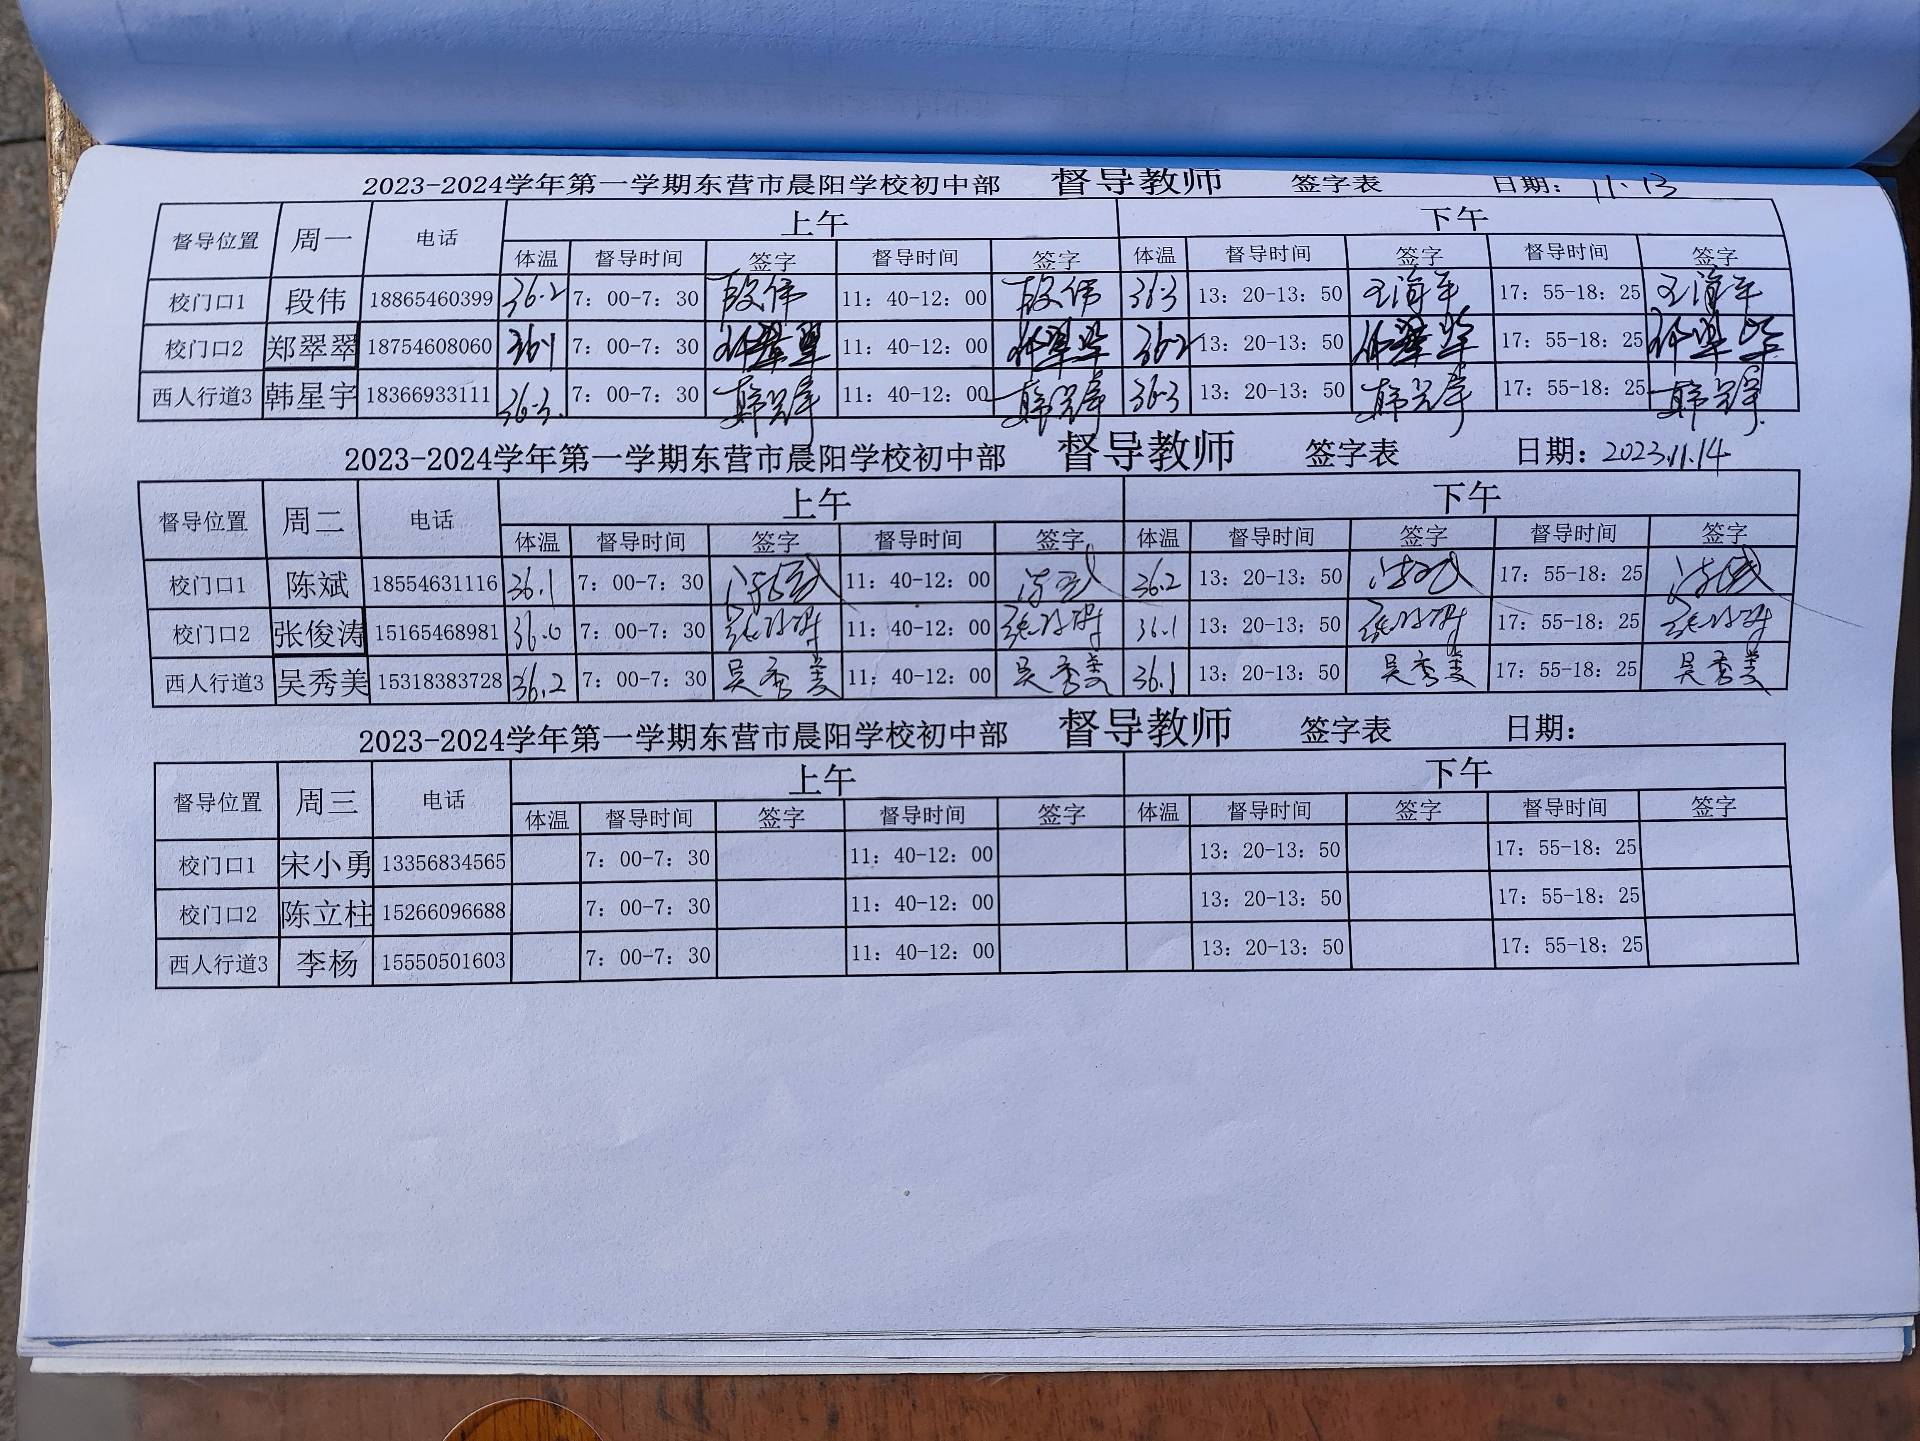 2023-2024学年第一学期东营市晨阳学校初中部 督导教师 签字表 日期: 11.13
督导位置 周一 电话 上午 下午
体温 督导时间 签字 督导时间 签字 体温 督导时间 签字 督导时间 签字
校门口1 段伟 18865460399 36.2 7: 00-7: 30 段伟 11: 40-12: 00 段伟 36.3 13: 20-13: 50 17: 55-18: 25
校门口2 郑翠翠 18754608060 36.1 7: 00-7: 30 11: 40-12: 00 36.2 13: 20-13: 50 17: 55-18: 25
西人行道3 韩星宇 18366933111 36.3 7: 00-7: 30 11: 40-12: 00 36.3 13: 20-13: 50 17: 55-18: 25
2023-2024学年第一学期东营市晨阳学校初中部 督导教师 签字表 日期: 2023.11.14
督导位置 周二 电话 上午 下午
体温 督导时间 签字 督导时间 签字 体温 督导时间 签字 督导时间 签字
校门口1 陈斌 18554631116 36.1 7: 00-7: 30 11: 40-12: 00 36.2 13: 20-13: 50 17: 55-18: 25
校门口2 张俊涛 15165468981 36.0 7: 00-7: 30 11: 40-12: 00 36.1 13: 20-13: 50 17: 55-18: 25
西人行道3 吴秀美 15318383728 36.2 7: 00-7: 30 吴秀美 11: 40-12: 00 吴秀美 36.1 13: 20-13: 50 吴秀美 17: 55-18: 25 吴秀美
2023-2024学年第一学期东营市晨阳学校初中部 督导教师 签字表 日期:
督导位置 周三 电话 上午 下午
体温 督导时间 签字 督导时间 签字 体温 督导时间 签字 督导时间 签字
校门口1 宋小勇 13356834565 7: 00-7: 30 11: 40-12: 00 13: 20-13: 50 17: 55-18: 25
校门口2 陈立柱 15266096688 7: 00-7: 30 11: 40-12: 00 13: 20-13: 50 17: 55-18: 25
西人行道3 李杨 15550501603 7: 00-7: 30 11: 40-12: 00 13: 20-13: 50 17: 55-18: 25